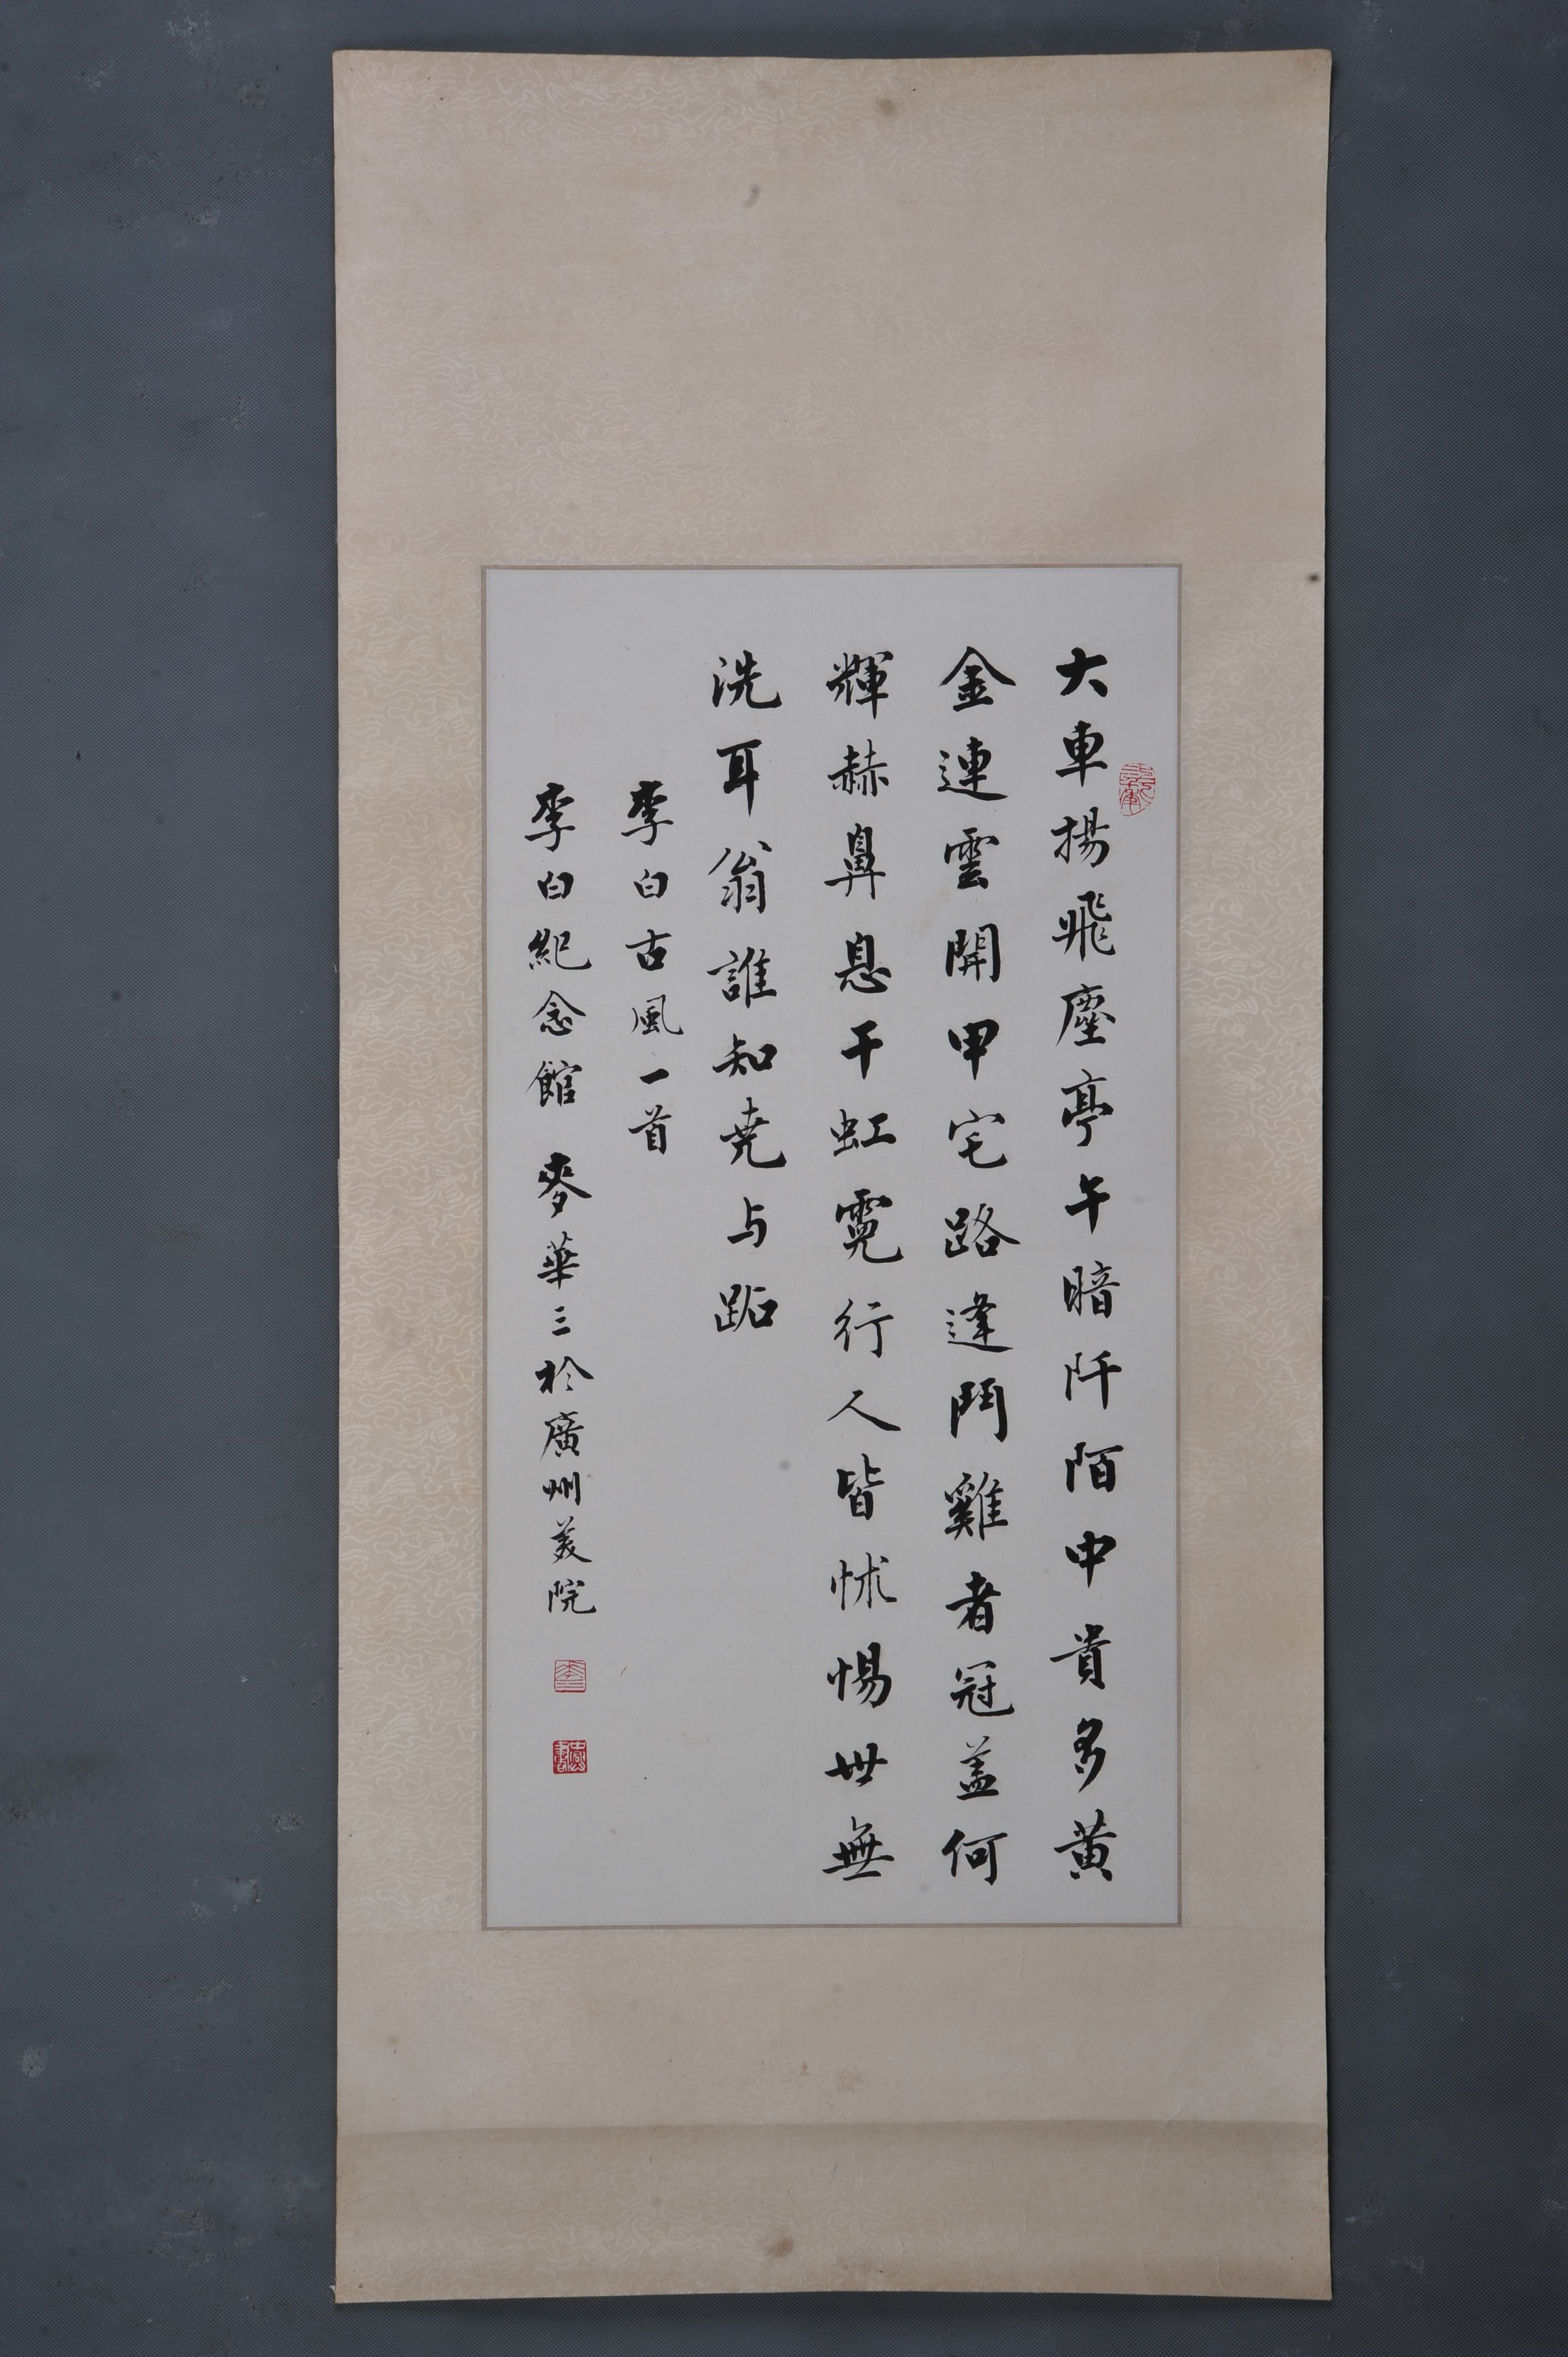 大車揚飛塵亭午暗阡陌中貴多黄
金連雲開甲宅路逢鬥雞者冠盖何
輝赫鼻息干虹霓行人皆怵惕世無
洗耳翁誰知尭与跖
李白古風一首
李白紀念館 麥華三於廣州美院